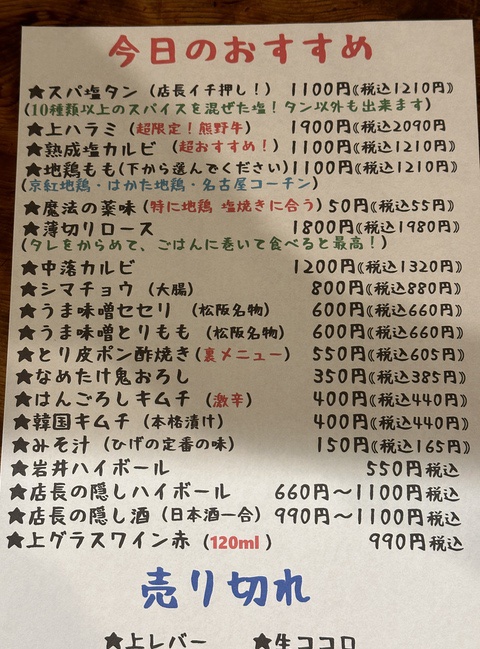 今日のおすすめ
★スパ塩タン（店長イチ押し！） 1100円（税込1210円）
（10種類以上のスパイスを混ぜた塩！タン以外も出来ます）
★上ハラミ（超限定！熊野牛） 1900円（税込2090円
★熟成塩カルビ（超おすすめ！） 1100円（税込1210円）
★地鶏もも（下から選んでください）1100円（税込1210円）
（京紅地鶏・はかた地鶏・名古屋コーチン）
★魔法の薬味（特に地鶏 塩焼きに合う）50円（税込55円）
★薄切りロース 1800円（税込1980円）
（タレをからめて、ごはんに巻いて食べると最高！）
★中落カルビ 1200円（税込1320円）
★シマチョウ（大腸） 800円（税込880円）
★うま味噌セセリ（松阪名物） 600円（税込660円）
★うま味噌とりもも（松阪名物） 600円（税込660円）
★とり皮ポン酢焼き（裏メニュー） 550円（税込605円）
★なめたけ鬼おろし 350円（税込385円）
★はんごろしキムチ（激辛） 400円（税込440円）
★韓国キムチ（本格漬け） 400円（税込440円）
★みそ汁（ひげの定番の味） 150円（税込165円）
★岩井ハイボール 550円税込
★店長の隠しハイボール 660円～1100円税込
★店長の隠し酒（日本酒一合）990円～1100円税込
★上グラスワイン赤（120ml） 990円税込
売り切れ
★上レバー ★生ココロ